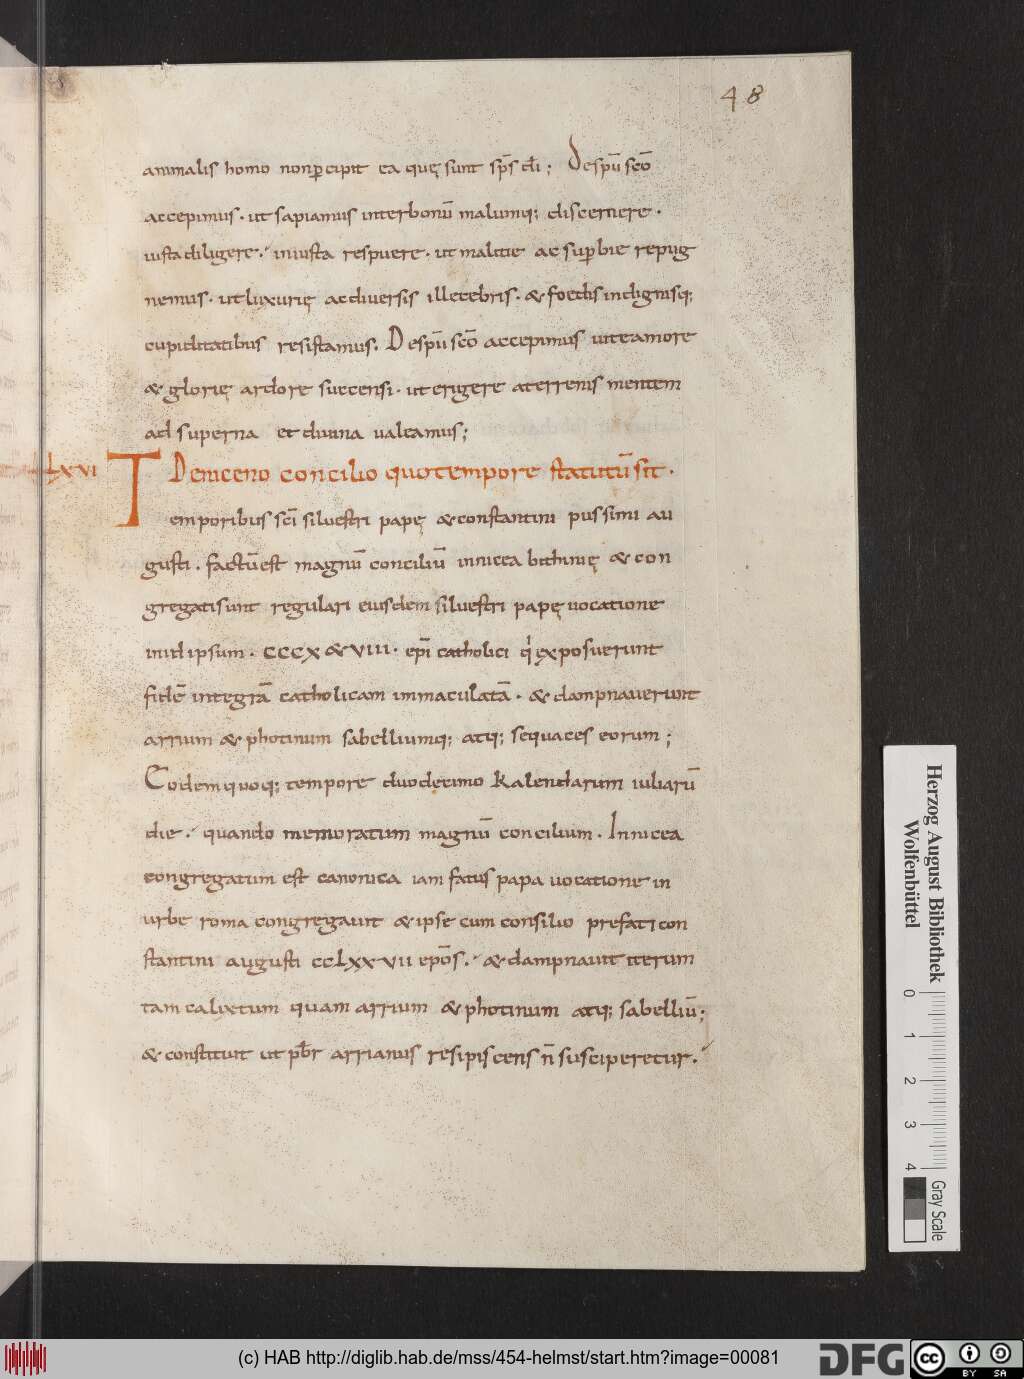 48
animalis homo non ꝑcipit ea quę sunt sp̄s dī; De spū scō
accepimus · ut sapiamus inter bonū malumq; discernere ·
iusta diligere · iniusta respuere · ut malitie ac suꝑbie repug
nemus · ut luxurię ac diversis illecebris · & foedis indignisq;
cupiditatibus resistamus. De spū scō accepimus ut eamore
& glorię ardore succensi · ut erigere a terrenis mentem
ad superna et divina valeamus;
LXVI De niceno concilio quo tempore statutū sit ·
Temporibus scī silvestri papę & constantini piissimi au
gusti · factū est magnū conciliū in nicea bithinię & con
gregati sunt regulari eiusdem silvestri papę vocatione
in id ipsum · CCCX & VIII · epī catholici qͥ exposuerunt
fidē integrā catholicam immaculatā · & dampnaverunt
arrium & photinum sabelliumq; atq; sequaces eorum;
Eodem quoq; tempore duodecimo Kalendarum iuliarū
die · quando memoratum magnū concilium · In nicea
congregatum est canonica iam fatus papa vocatione in
urbe roma congregavit & ipse cum consilio prefati con
stantini augusti CCLXXVII epōs · & dampnavit iterum
tam calixtum quam arrium & photinum atq; sabelliū;
& constituit ut pƀr arrianus resipiscens n̄ susciperetur ·
Herzog August Bibliothek
Wolfenbüttel
0 1 2 3 4
Gray Scale
(c) HAB http://diglib.hab.de/mss/454-helmst/start.htm?image=00081
DFG
cc BY SA